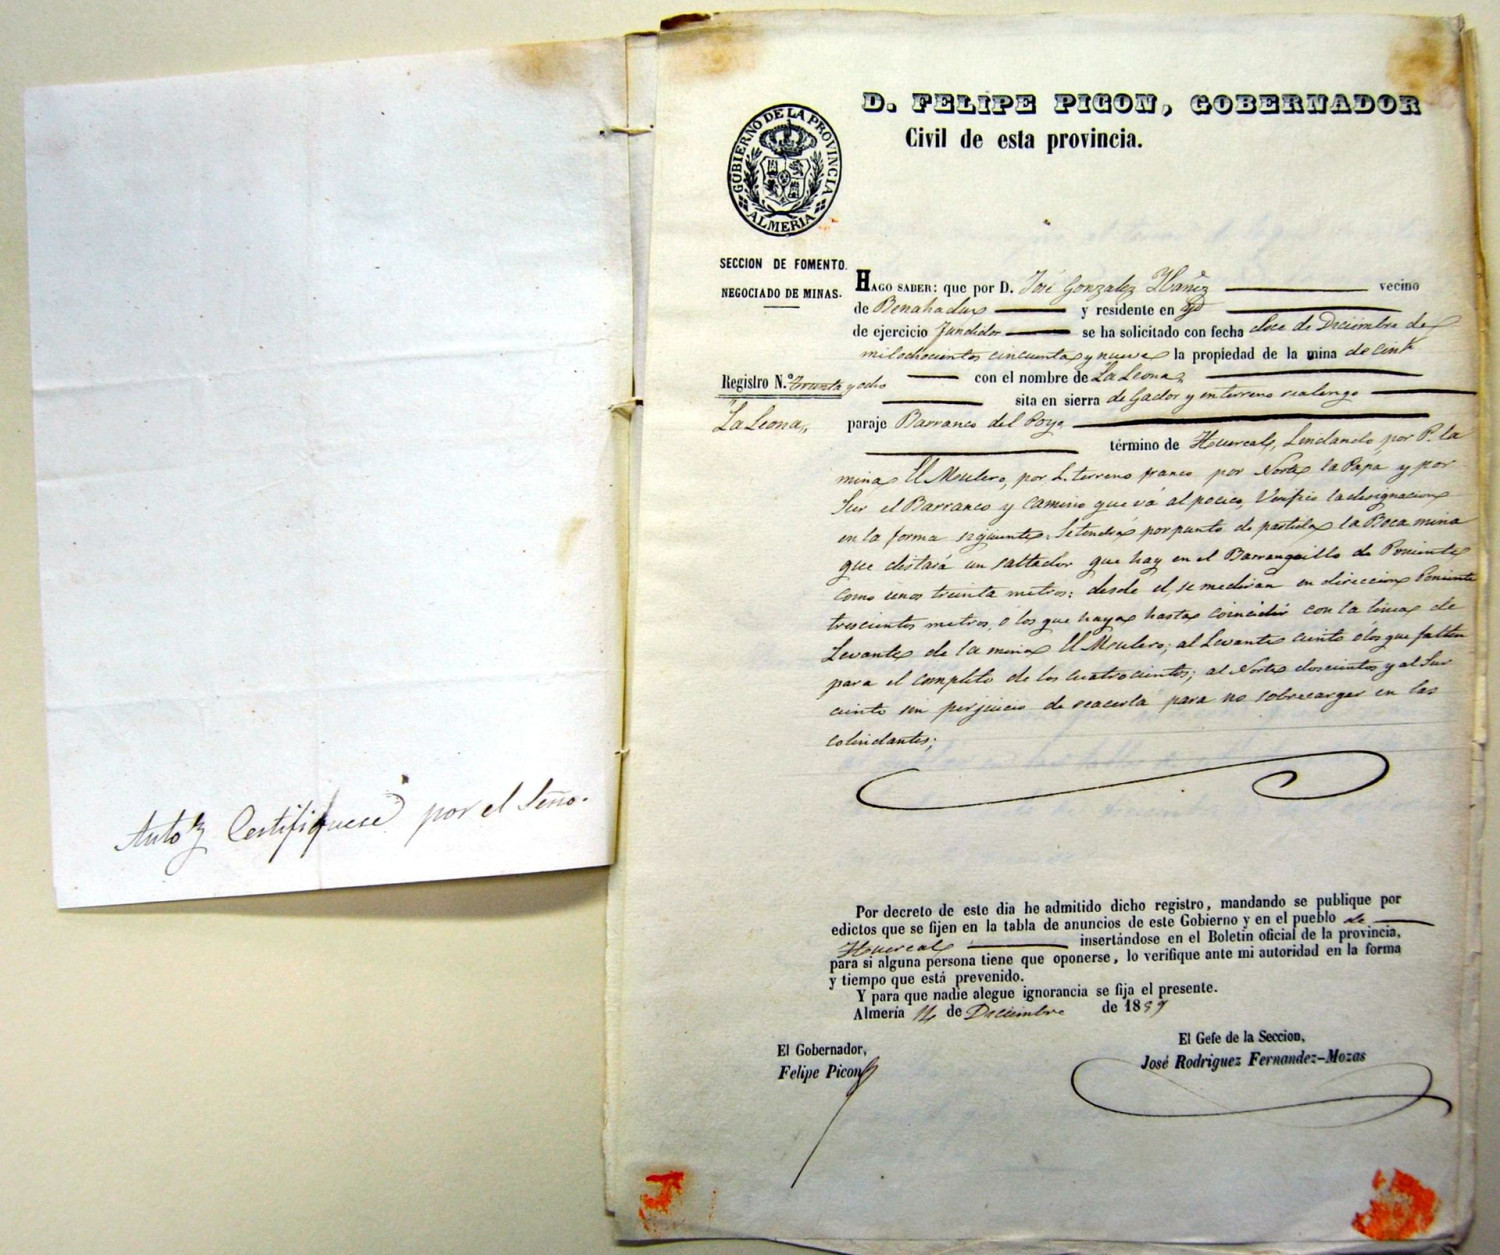 Certifiquese por el Seño.
D. FELIPE PICON, GOBERNADOR
Civil de esta provincia.
GOBIERNO DE LA PROVINCIA
ALMERIA
SECCION DE FOMENTO.
NEGOCIADO DE MINAS.
HAGO SABER: que por D. José Gonzalez Ybañez vecino
de Benahadux y residente en
de ejercicio fundidor se ha solicitado con fecha doce de Diciembre de
milochocientos cincuenta y nueve la propiedad de la mina de
Registro N.º treinta y ocho con el nombre de La Leona,
sita en sierra de Gador y en terreno realengo
La Leona,,
paraje Barranco del
término de Huercal, Lindando por P. la
mina El Mulero, por L. terreno franco por Norte la Papa y por
Sur el Barranco y camino que vá al pocico, Verifico la designacion
en la forma siguiente: Se tendrá por punto de partida la Boca mina
que distará un saltador que hay en el Barranquillo de Poniente
como unos treinta metros: desde el, se mediran en direccion Poniente
trescientos metros, ó los que haya hasta coincidir con la linea de
Levante de la mina El Mulero; al Levante ciento ó los que falten
para el completo de los cuatrocientos; al Norte doscientos y al Sur
ciento sin perjuicio de para no sobrecargar en las
colindantes;
Por decreto de este dia he admitido dicho registro, mandando se publique por
edictos que se fijen en la tabla de anuncios de este Gobierno y en el pueblo de
Huercal insertándose en el Boletin oficial de la provincia,
para si alguna persona tiene que oponerse, lo verifique ante mi autoridad en la forma
y tiempo que está prevenido.
Y para que nadie alegue ignorancia se fija el presente.
Almería 14 de Deciembre de 1859
El Gobernador,
Felipe Picon
El Gefe de la Seccion,
José Rodriguez Fernandez-Mozas